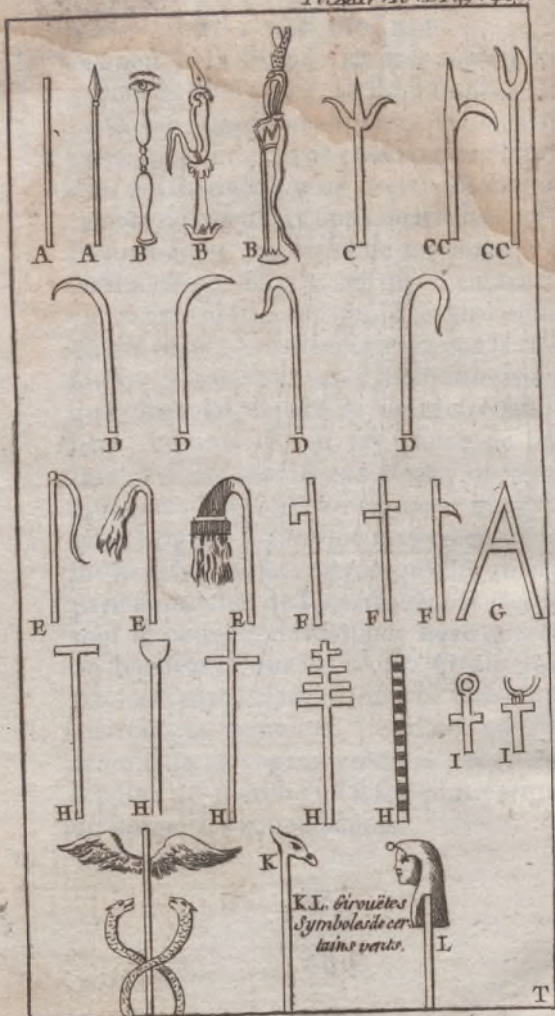 A A B B B C CC CC
D D D D
E E E F F F G
H H H H H I I
K
K.L. Girouëtes
Symboles de cer-
tains vents.
L
T